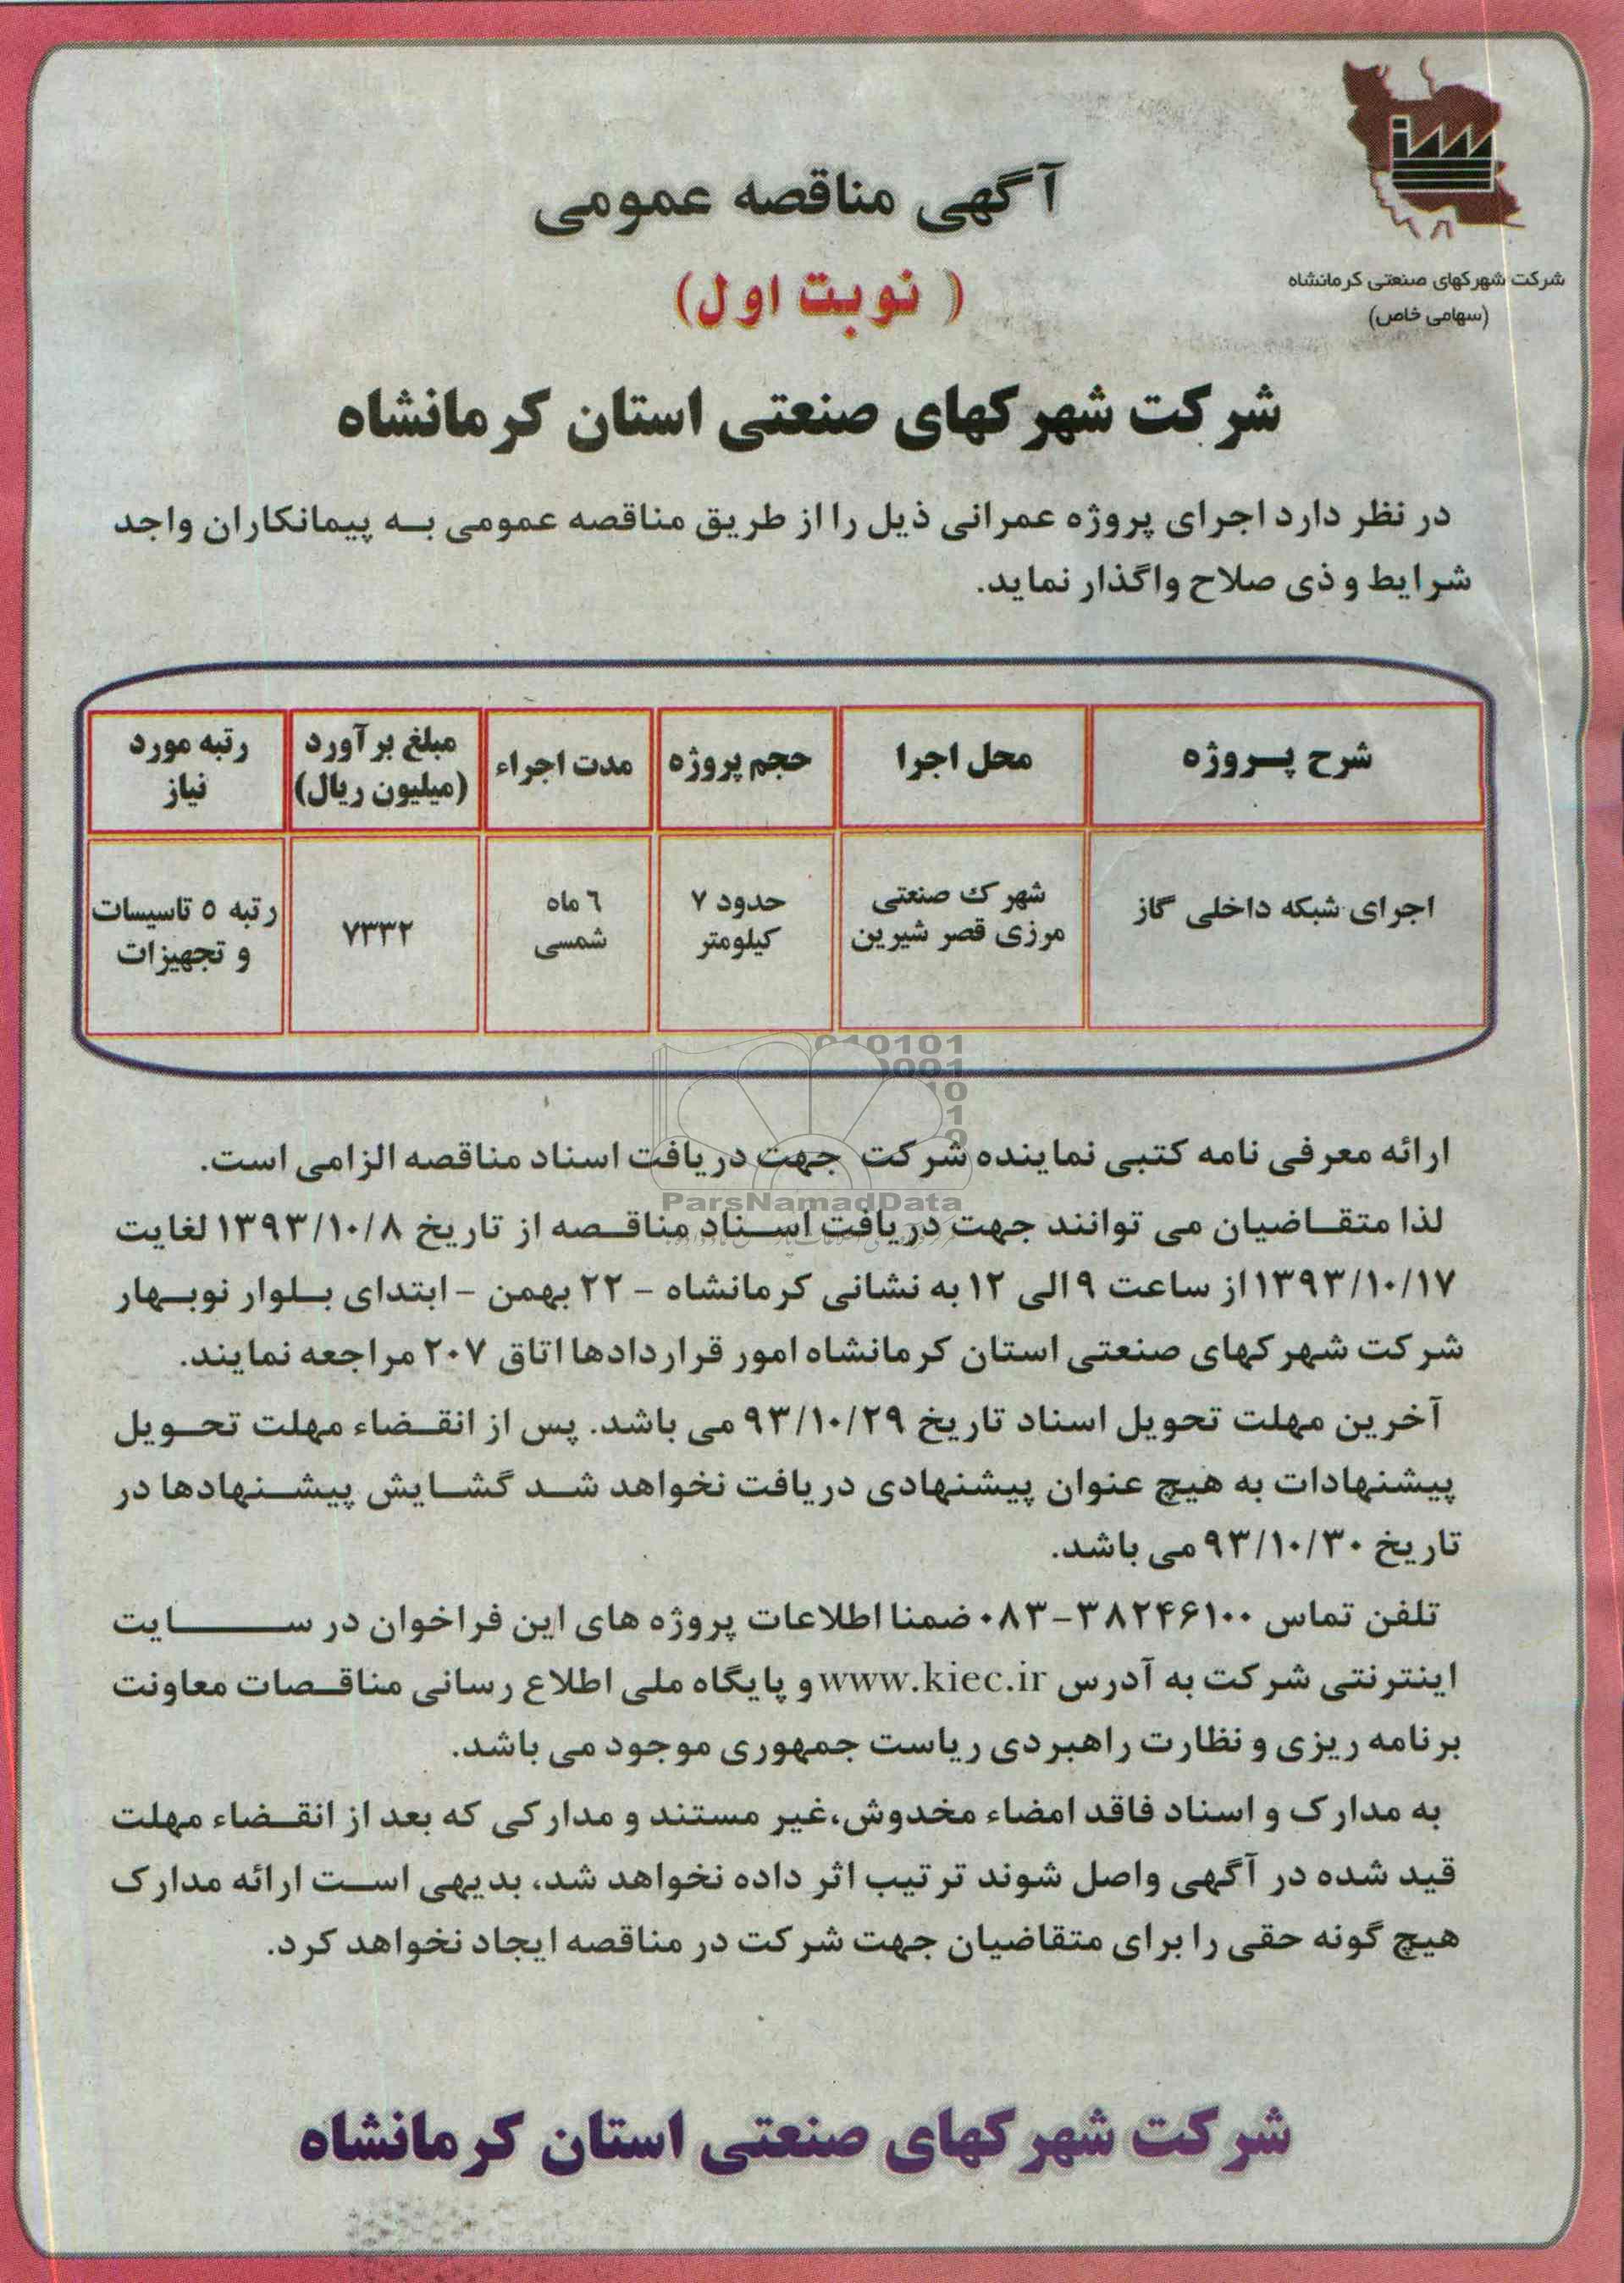 شرکت شهرکهای صنعتی کرمانشاه
(سهامی خاص)
آگهی مناقصه عمومی
( نوبت اول)
شرکت شهرکهای صنعتی استان کرمانشاه
در نظر دارد اجرای پروژه عمرانی ذیل را از طریق مناقصه عمومی به پیمانکاران واجد
شرایط و ذی صلاح واگذار نماید.
شرح پروژه | محل اجرا | حجم پروژه | مدت اجراء | مبلغ برآورد (میلیون ریال) | رتبه مورد نیاز
اجرای شبکه داخلی گاز | شهرک صنعتی مرزی قصر شیرین | حدود ۷ کیلومتر | ۶ ماه شمسی | ۷۳۳۲ | رتبه ۵ تاسیسات و تجهیزات
010101
0001
10
1
0
ارائه معرفی نامه کتبی نماینده شرکت جهت دریافت اسناد مناقصه الزامی است.
ParsNamadData
لذا متقاضیان می توانند جهت دریافت اسناد مناقصه از تاریخ ۱۳۹۳/۱۰/۸ لغایت
۱۳۹۳/۱۰/۱۷ از ساعت ۹ الی ۱۲ به نشانی کرمانشاه - ۲۲ بهمن - ابتدای بلوار نوبهار
شرکت شهرکهای صنعتی استان کرمانشاه امور قراردادها اتاق ۲۰۷ مراجعه نمایند.
آخرین مهلت تحویل اسناد تاریخ ۹۳/۱۰/۲۹ می باشد. پس از انقضاء مهلت تحویل
پیشنهادات به هیچ عنوان پیشنهادی دریافت نخواهد شد گشایش پیشنهادها در
تاریخ ۹۳/۱۰/۳۰ می باشد.
تلفن تماس ۳۸۲۴۶۱۰۰-۰۸۳ ضمنا اطلاعات پروژه های این فراخوان در سایت
اینترنتی شرکت به آدرس www.kiec.ir و پایگاه ملی اطلاع رسانی مناقصات معاونت
برنامه ریزی و نظارت راهبردی ریاست جمهوری موجود می باشد.
به مدارک و اسناد فاقد امضاء مخدوش،غیر مستند و مدارکی که بعد از انقضاء مهلت
قید شده در آگهی واصل شوند ترتیب اثر داده نخواهد شد، بدیهی است ارائه مدارک
هیچ گونه حقی را برای متقاضیان جهت شرکت در مناقصه ایجاد نخواهد کرد.
شرکت شهرکهای صنعتی استان کرمانشاه